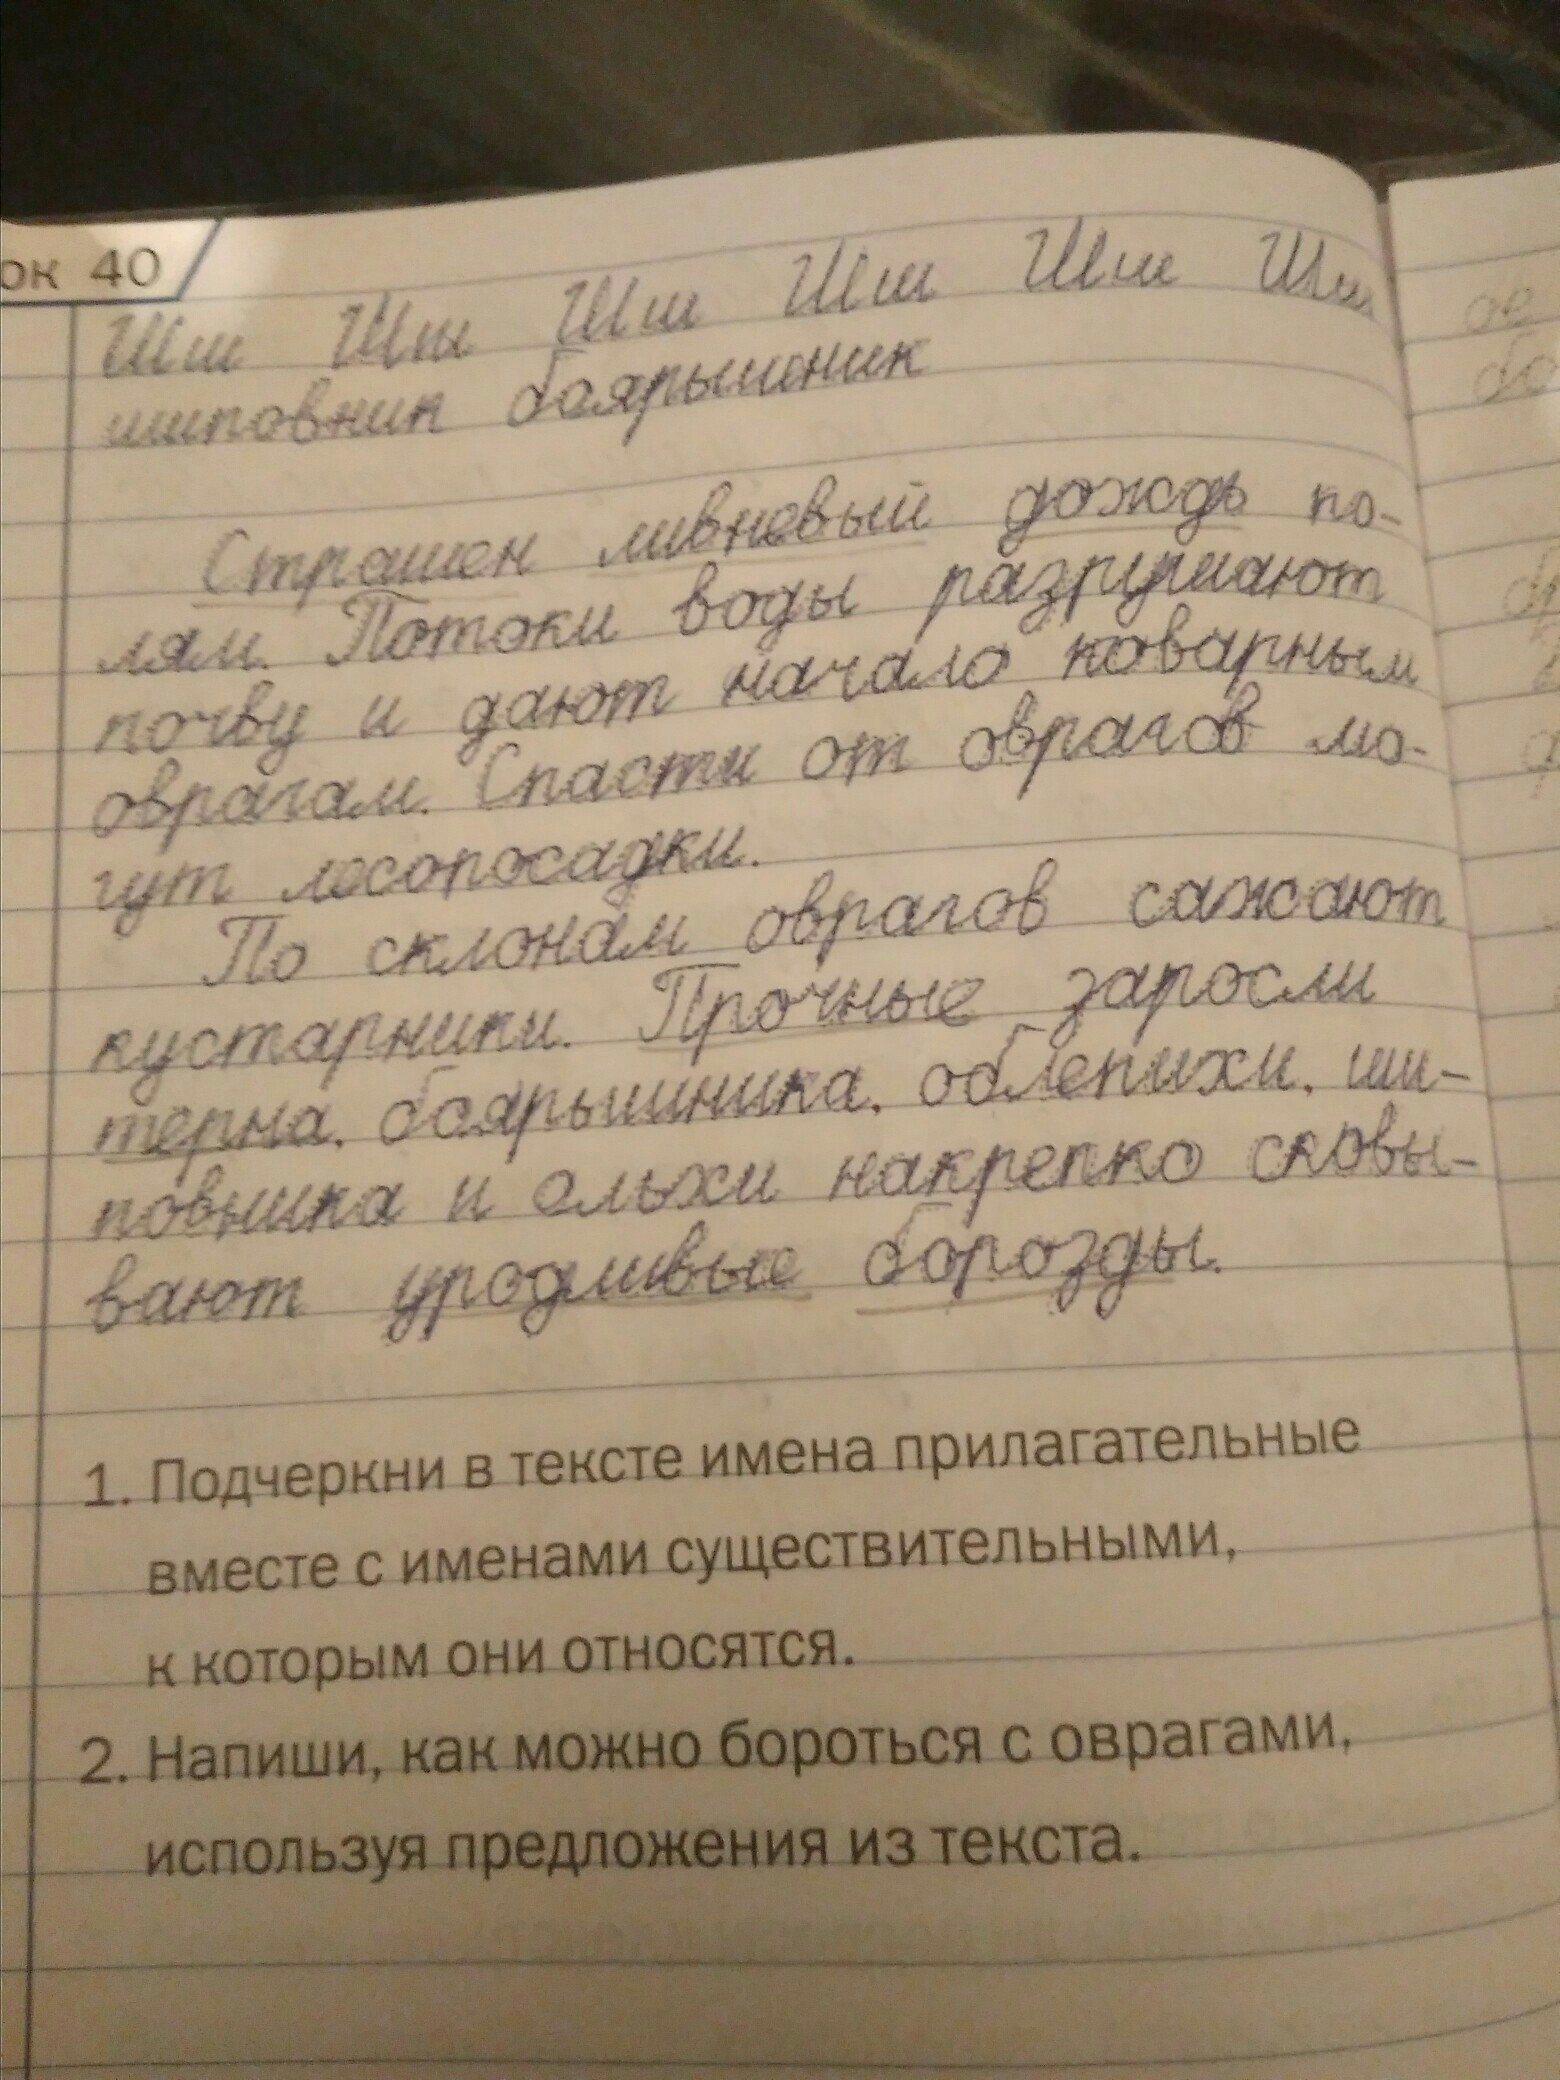 ок 40
Шш Шш Шш Шш Шш Шш
шиповник боярышник
Страшен ливневый дождь по-
лям. Потоки воды разрушают
почву и дают начало коварным
оврагам. Спасти от оврагов мо-
гут лесопосадки.
По склонам оврагов сажают
кустарники. Прочные заросли
терна, боярышника, облепихи, ши-
повника и ольхи накрепко сковы-
вают уродливые борозды.
1. Подчеркни в тексте имена прилагательные
вместе с именами существительными,
к которым они относятся.
2. Напиши, как можно бороться с оврагами,
используя предложения из текста.